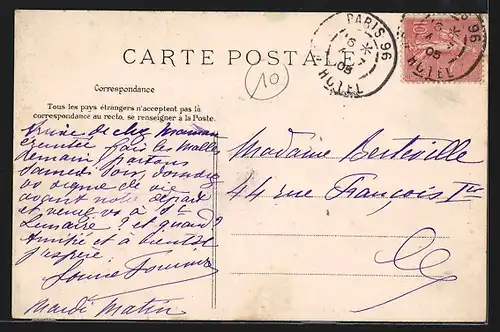 CARTE POSTALE
PARIS 96
HOTEL
05
PARIS 96
HOTEL
05
10
Correspondance
Tous les pays étrangers n'acceptent pas la
correspondance au recto, se renseigner à la Poste.
de chez maman
fais les Malle
demain, partons
Samedi Soir,
signe de vie
avant notre départ
et à Ste
? et quand?
Amitié et à bientôt
j'espère.
Mardi Matin
Madame Berteville
44 rue François 1er